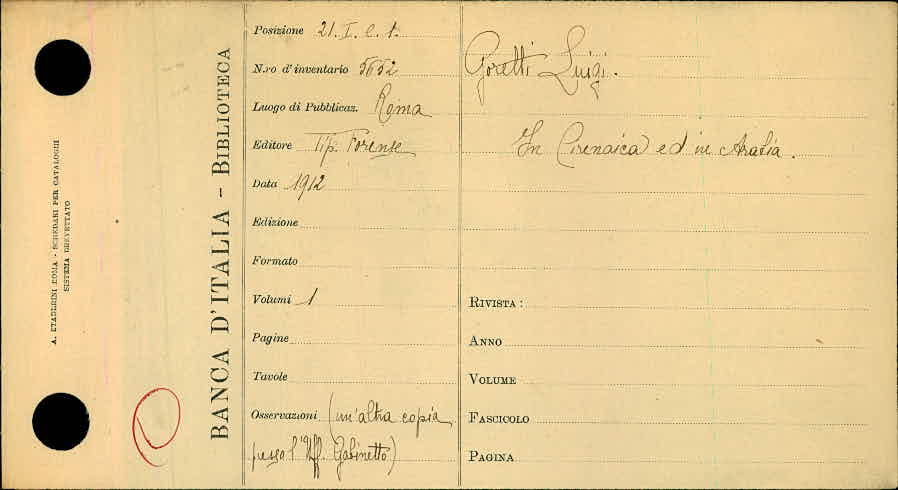 A. STADERINI ROMA - SCHEDARI PER CATALOGHI
SISTEMA BREVETTATO
BANCA D'ITALIA - BIBLIOTECA
Posizione 21. I. e. 1.
N.ro d'inventario 5652
Luogo di Pubblicaz. Roma
Editore Tip. Forense
Data 1912
Edizione
Formato
Volumi 1
Pagine
Tavole
Osservazioni (un'altra copia
presso l'Uff. Gabinetto)
Goretti Luigi.
In Cirenaica ed in Arabia.
RIVISTA :
ANNO
VOLUME
FASCICOLO
PAGINA